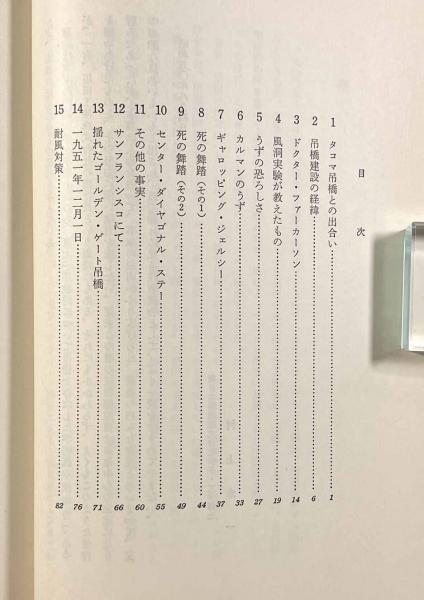 目次
1 タコマ吊橋との出合い 1
2 吊橋建設の経緯 6
3 ドクター・ファーカーソン 14
4 風洞実験が教えたもの 19
5 うずの恐ろしさ 27
6 カルマンのうず 33
7 ギャロッピング・ジェルシー 37
8 死の舞踏（その1） 44
9 死の舞踏（その2） 49
10 センター・ダイヤゴナル・ステー 55
11 その他の事実 60
12 サンフランシスコにて 66
13 揺れたゴールデン・ゲート吊橋 71
14 一九五一年一二月一日 76
15 耐風対策 82